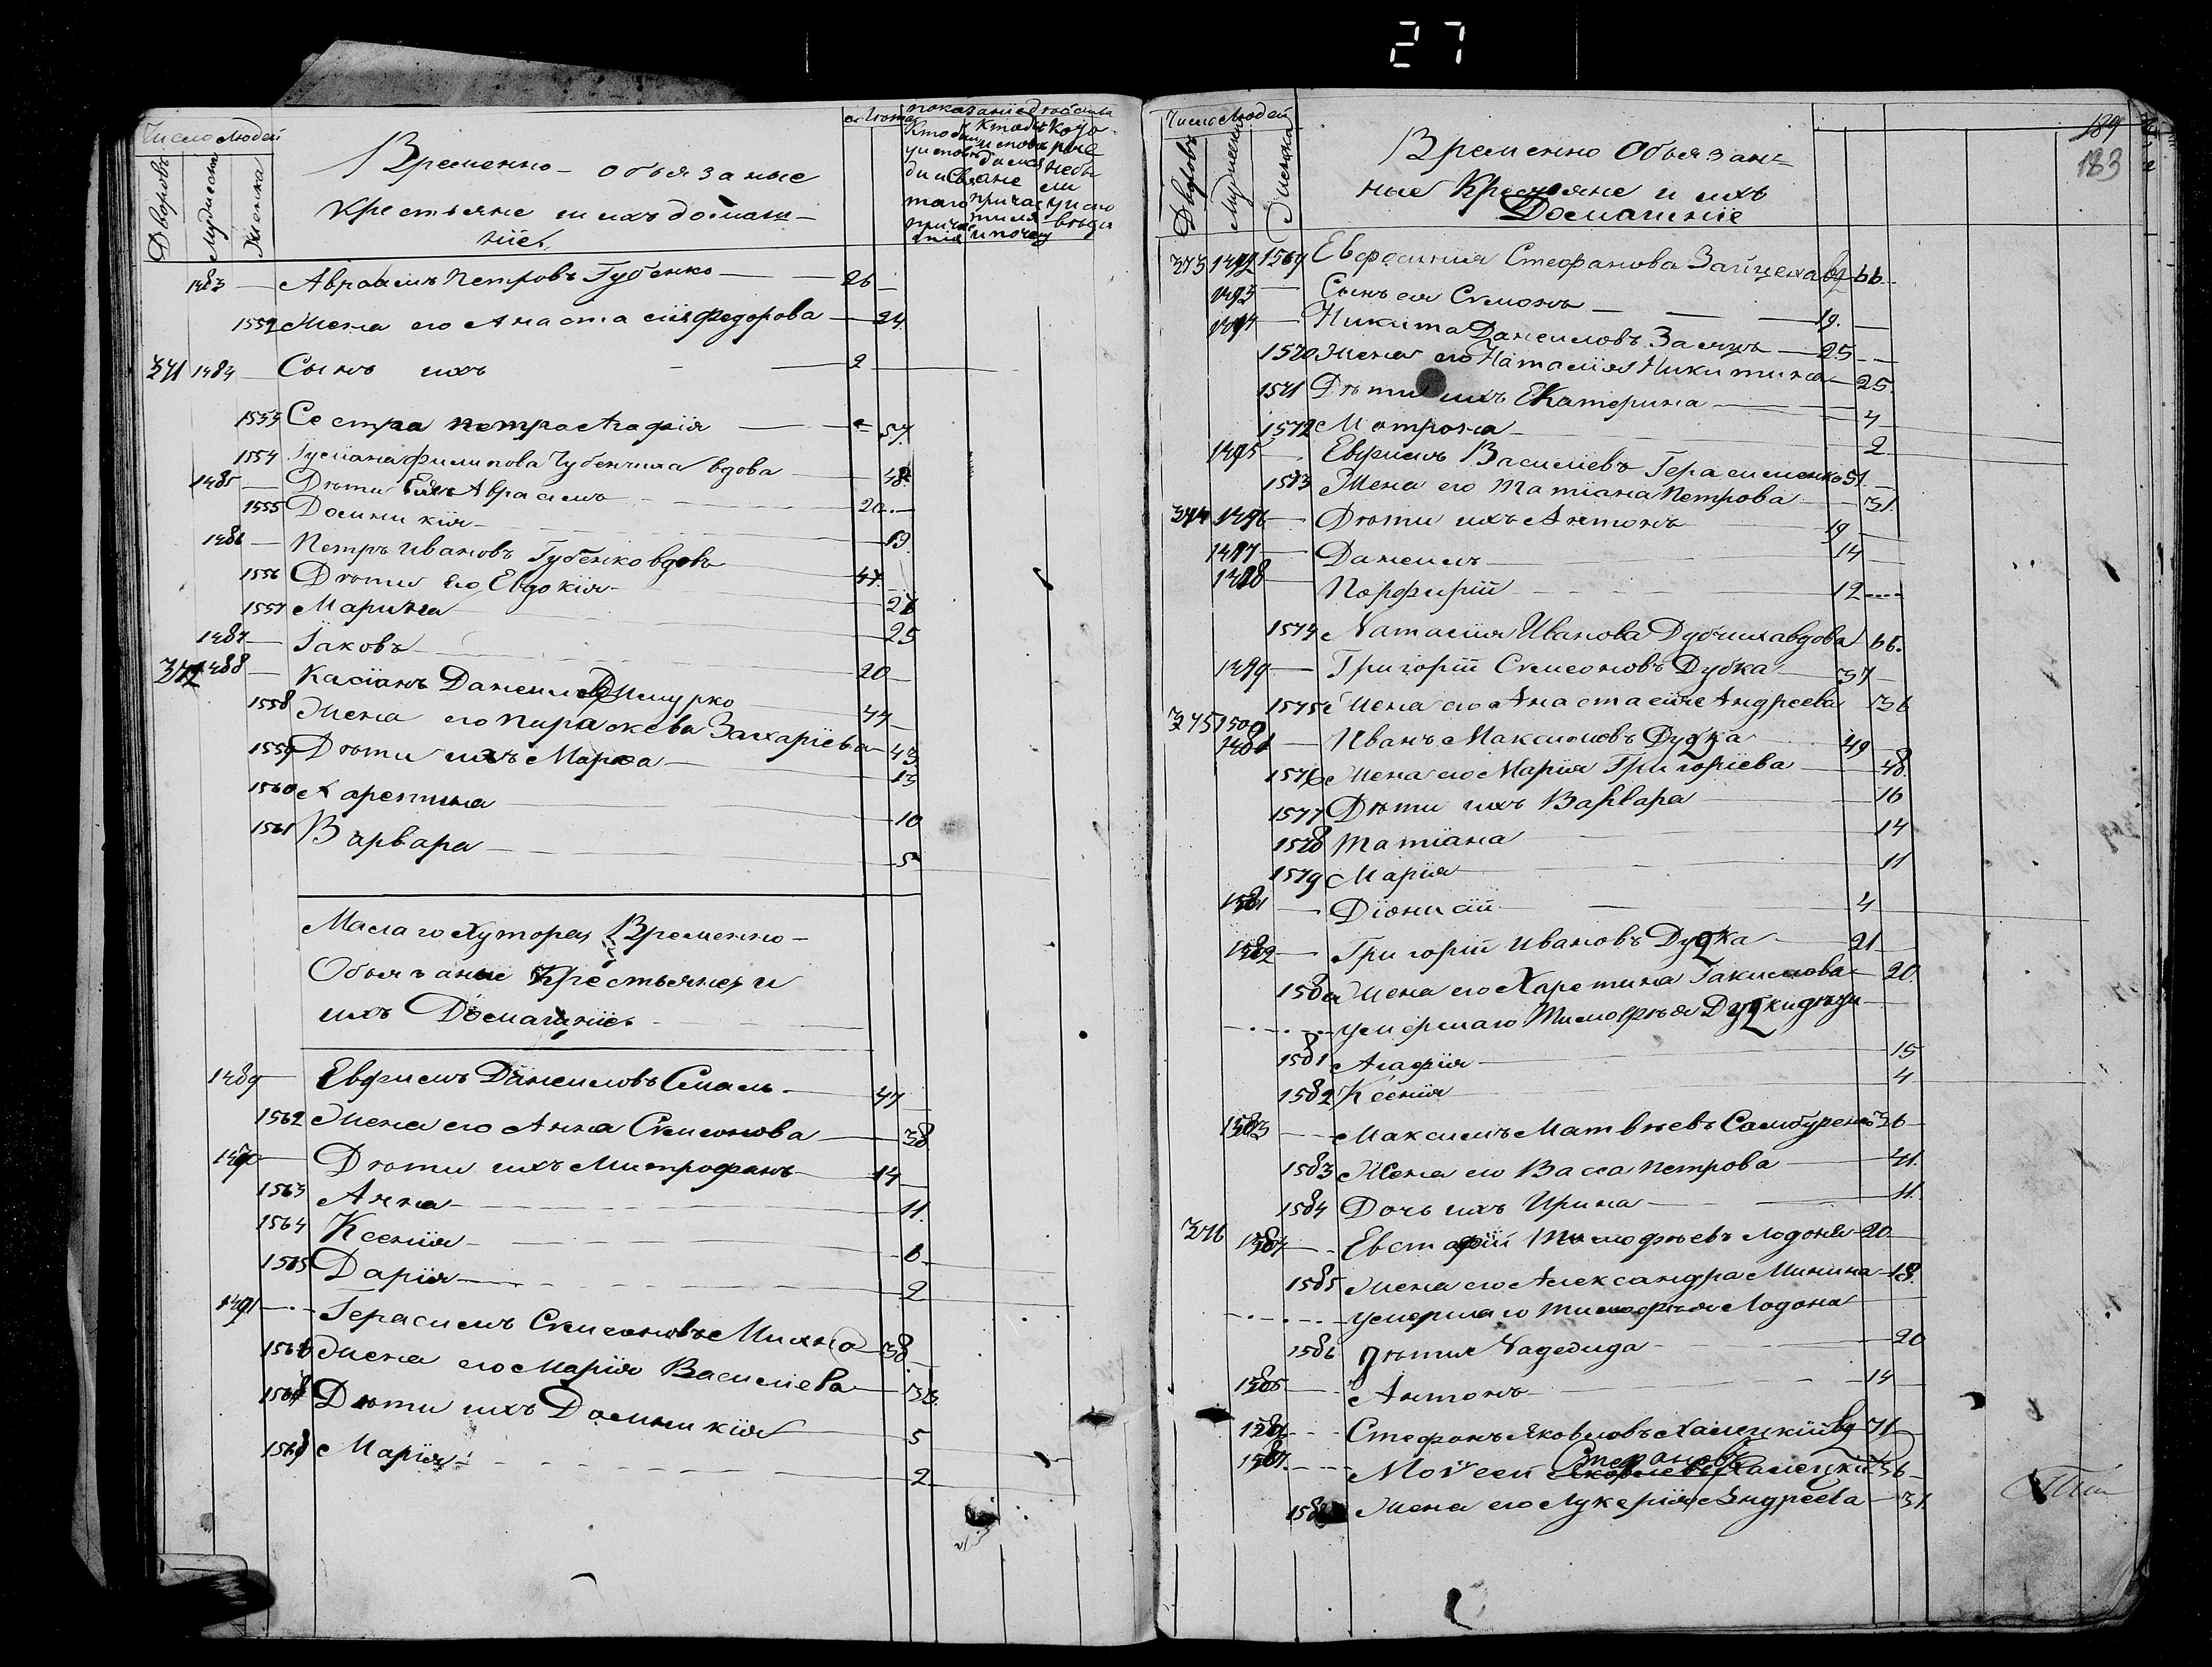 27
Число Людей
Дворовъ
Мужеска
Женска
Временно- объязаные
крестьяне и ихъ домаш-
ніе
Лета
1483 Авраамъ Петровъ Губенко 26
1552 Жена его Анастасія Федорова 24
371 1484 Сынъ ихъ 2
1553 Сестра петра Агафія 57
1554 Филипова вдова 48
1485 Дѣти Ея Аврамъ 20
1555 Доминикія 19
1486 Петръ Ивановъ Губенко вдовъ 47
1556 Дѣти его Евдокія 27
1557 Марина 25
1487 Іаковъ 20
372 1488 Касіанъ Данеиловъ 44
1558 Жена его параскева Захаріева 43
1559 Дѣти ихъ Марѳа 13
1560 Харетина 10
1561 Варвара 5
Малаго Хутора Временно-
Объязаные Крестьяне и
ихъ Домашніе
1489 Евфимъ Данеиловъ 47
1562 Жена его Анна Семеонова 38
1490 Дѣти ихъ Митрофанъ 14
1563 Анна 11
1564 Ксенія 6
1565 Дарія 2
1491 Герасимъ Семеоновъ 38
1566 Жена его Марія Василіева 33
1567 Дѣти ихъ Доминикія 5
1568 Марія 2
189
183
Число Людей
Дворовъ
Мужеска
Женска
Временно Объязан-
ные Крестьяне и ихъ
Домашніе
373 1492 1569 Евфросинія Стефанова вд 66
1493 Сынъ ея Семеонъ 19
1494 Никита Данеиловъ Заяцъ 25
1570 Жена его Наталія Никитина 25
1571 Дѣти ихъ Екатерина 4
1572 Матрона 2
1495 Евфимъ Василіевъ Герасименко 51
1573 Жена его Татіана Петрова 51
374 1496 Дѣти ихъ Антонъ 19
1497 Данеилъ 14
1498 Порфирій 12
1574 Наталія Иванова вдова 66
1499 Григорій Семеоновъ Дубка 37
1575 Жена его Анастасія Андреева 36
375 1500 Иванъ Максимовъ Дудка 49
1576 Жена его Марія Григоріева 48
1577 Дѣти ихъ Варвара 16
1578 Татіана 14
1579 Марія 11
1501 Діонисій 4
1502 Григорій Ивановъ Дудка 21
1580 Жена его Харетина Іакимова 20
умершаго Тимофѣя Дудки дѣти
1581 Агафія 15
1582 Ксенія 4
1503 Максимъ Матвѣевъ 36
1583 Жена его Васса Петрова 41
1584 Дочь ихъ Ирина 11
376 1504 Евстафій Тимофѣевъ Лодоня 20
1585 Жена его Александра Минина 18
умершаго Тимофѣя Лодона
1586 Дѣти Надежда 20
1505 Антонъ 14
1506 Стефанъ Яковлевъ вд 71
1507 Моѵсей Стефановъ 36
1588 Жена его Лукерія Андреева 31